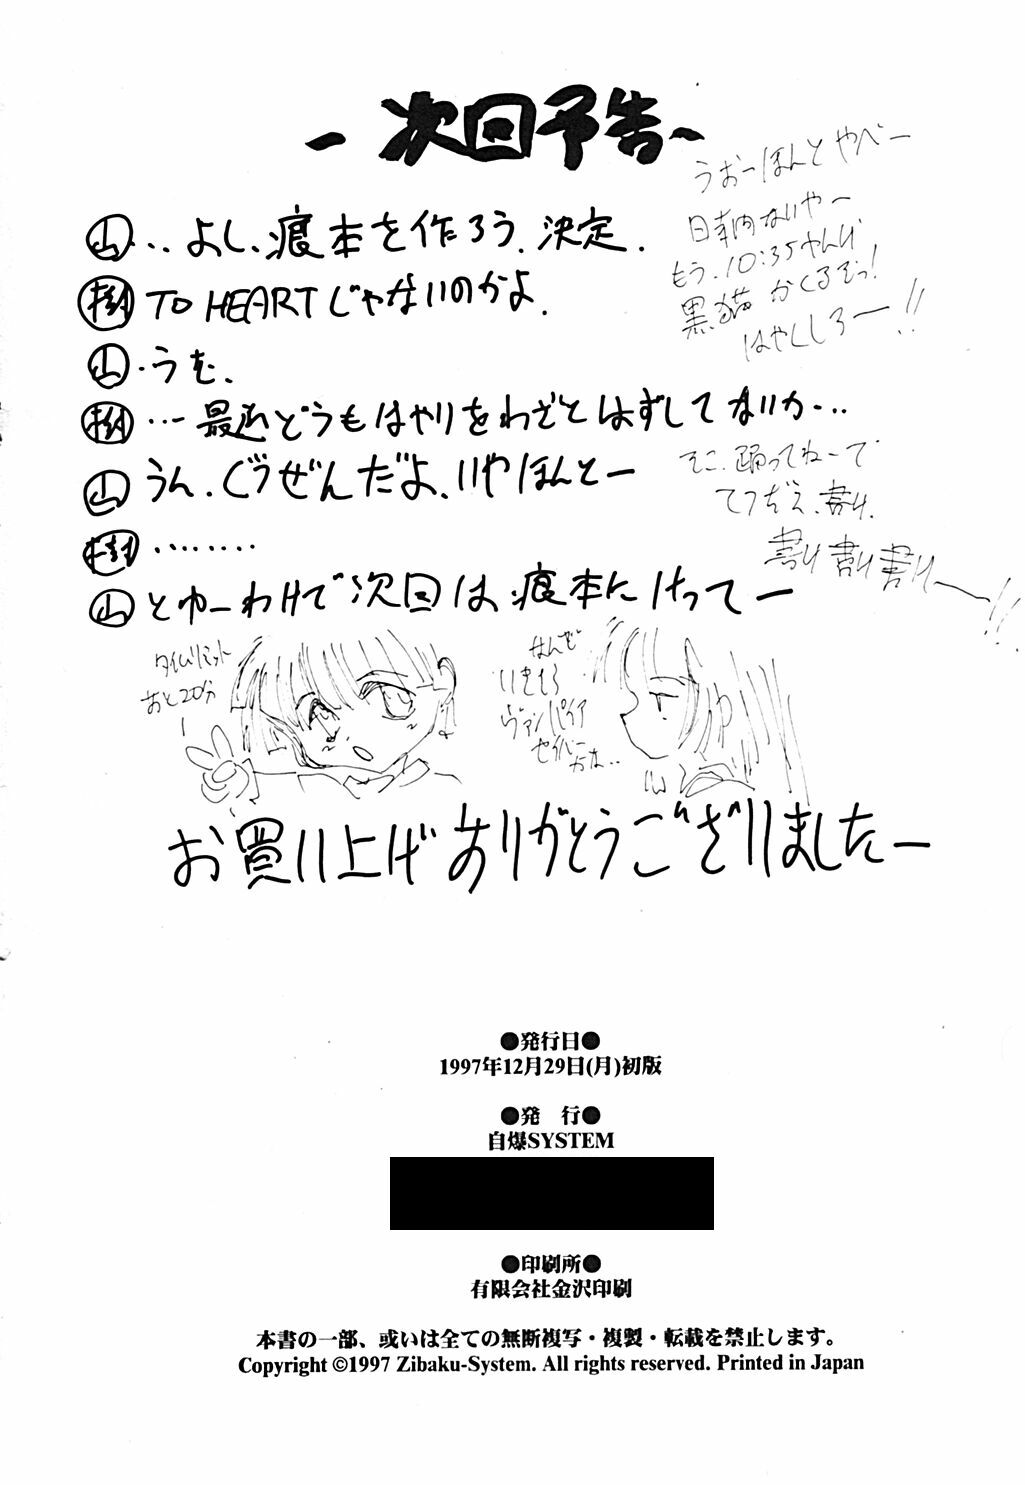 －次回予告－
山 ‥よし、痕本を作ろう、決定.
樹 TO HEARTじゃないのかよ.
山 ・うむ、
樹 …最近どうもはやりをわざとはずしてないか…
山 うん、ぐうぜんだよ、いやほんとー
樹 ‥‥‥‥
山 とゆーわけで次回は、痕本にけってー
うおーほんとやべー
時間ないやー
もう、10:35やんけ
黒猫がくるぞっ!
はやくしろー!!
そこ、踊ってねーで
てつだえ、書け、
書け書け書けー!!
タイムリミット
あと20分
なんで
いきなり
ヴァンパイア
セイバー
かな‥
お買い上げありがとうございましたー
●発行日●
1997年12月29日(月)初版
●発　行●
自爆SYSTEM
●印刷所●
有限会社金沢印刷
本書の一部、或いは全ての無断複写・複製・転載を禁止します。
Copyright ©1997 Zibaku-System. All rights reserved. Printed in Japan